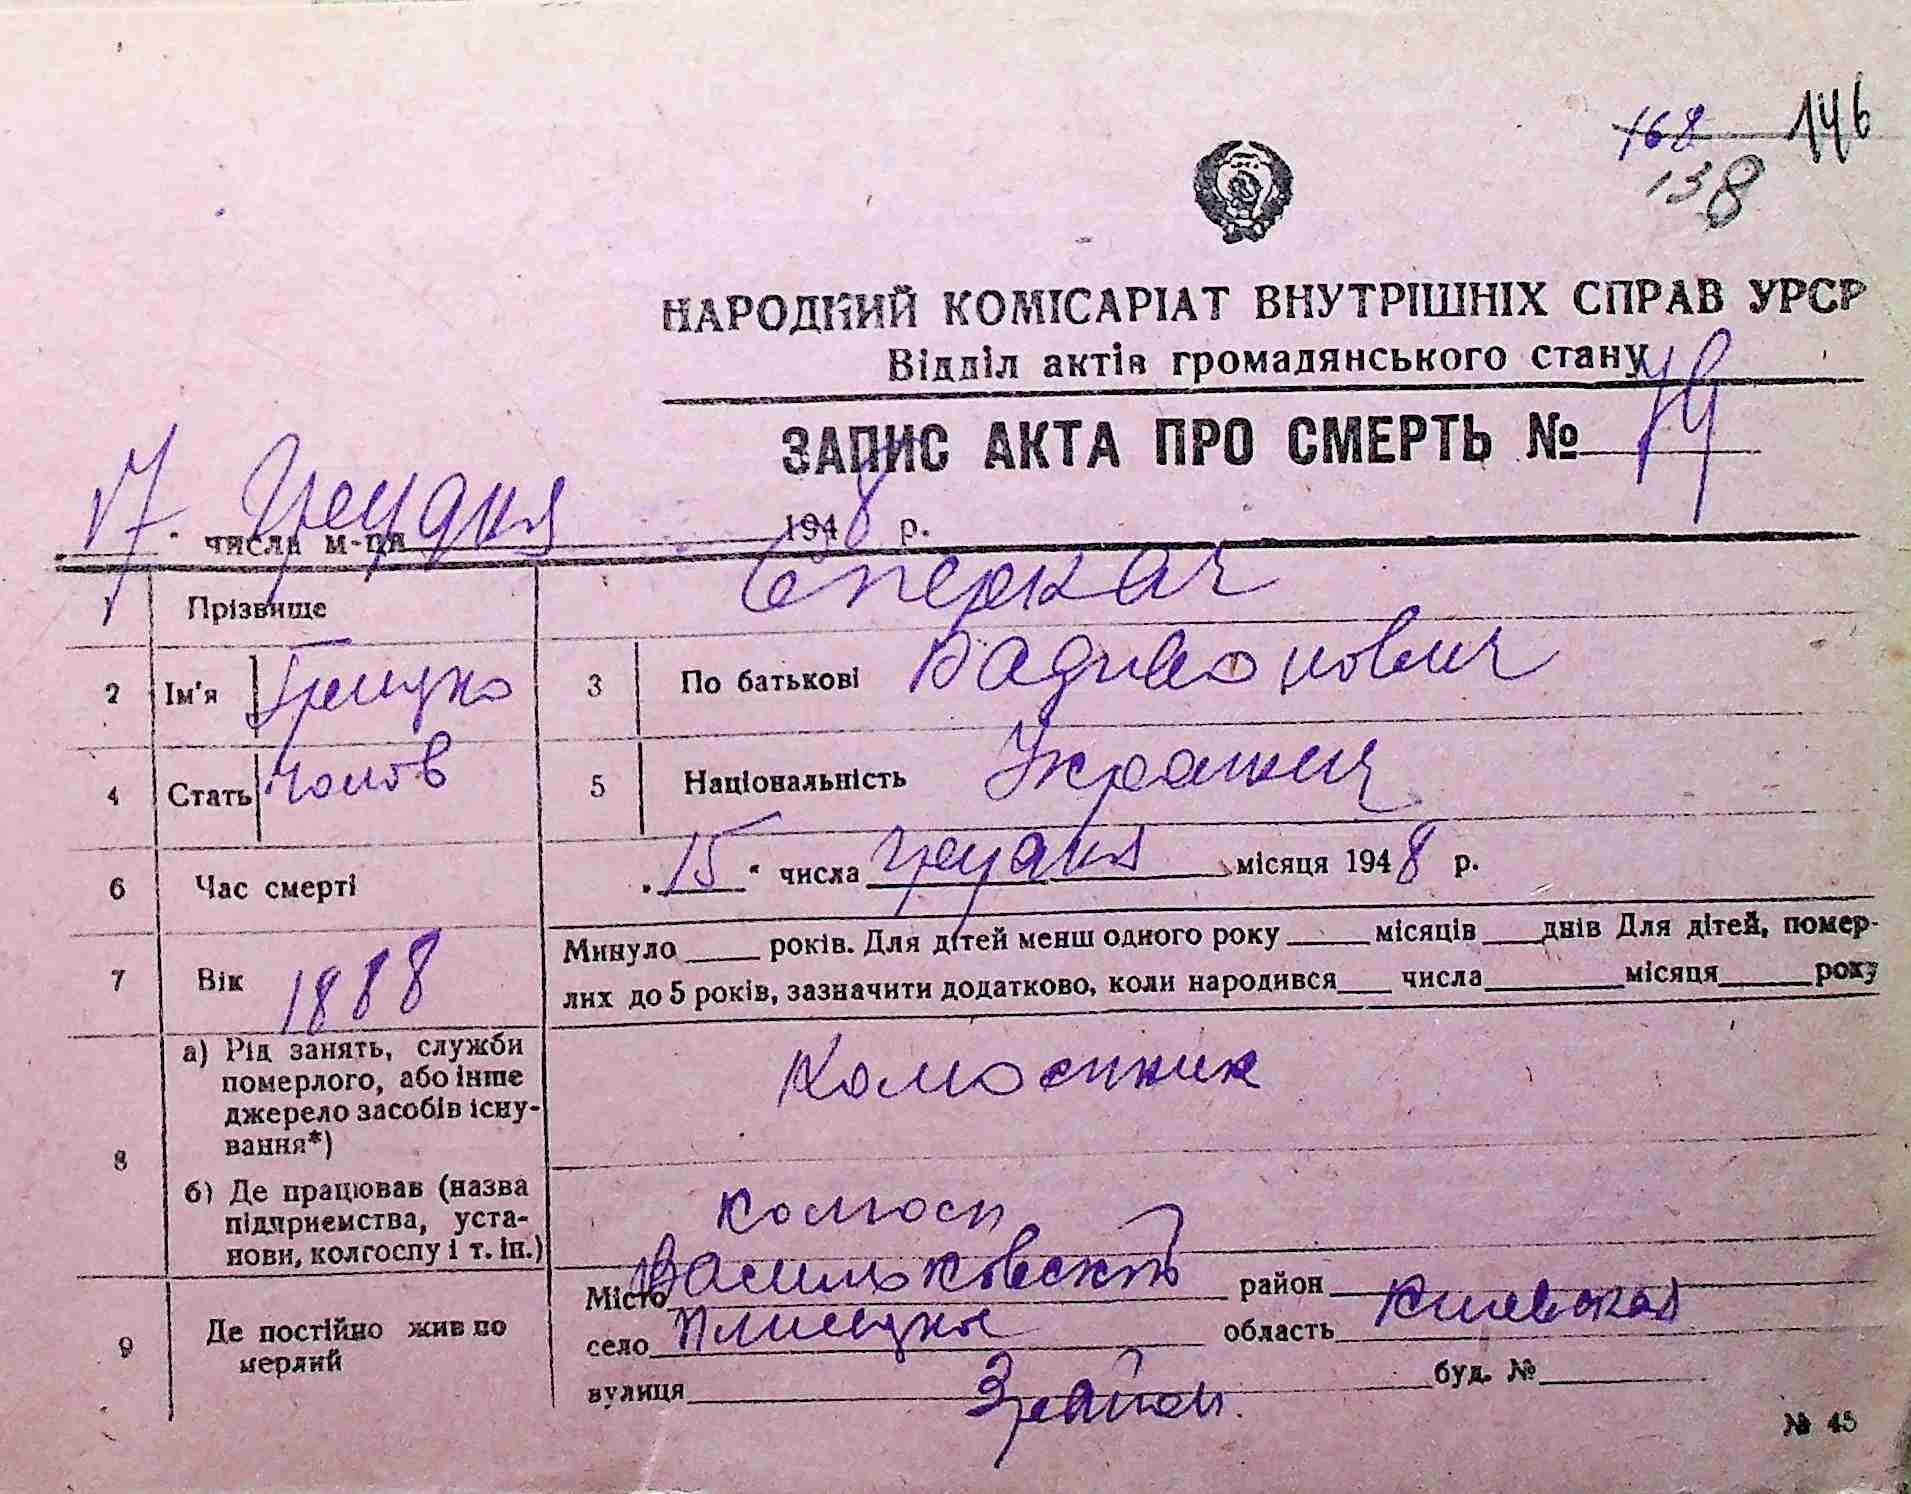 168 146
138
НАРОДНИЙ КОМІСАРІАТ ВНУТРІШНІХ СПРАВ УРСР
Відділ актів громадянського стану
ЗАПИС АКТА ПРО СМЕРТЬ № 79
17 " числа м-ця грудня 1948 р.
1 Прізвище Сперкач
2 Ім'я Грицько 3 По батькові
4 Стать Чолов 5 Національність Украинец
6 Час смерті „ 15 " числа грудня місяця 1948 р.
7 Вік 1888 Минуло ____ років. Для дітей менш одного року ____ місяців ____ днів Для дітей, помер-
лих до 5 років, зазначити додатково, коли народився ____ числа ____ місяця ____ року
8 а) Рід занять, служби
померлого, або інше
джерело засобів існу-
вання*)
Колоспник
б) Де працював (назва
підприємства, уста-
нови, колгоспу і т. ін.)
колгосп
9 Де постійно жив по
мерлий
Місто Васильковский район
село Плисецкое область Киевская
вулиця буд. №
№ 45